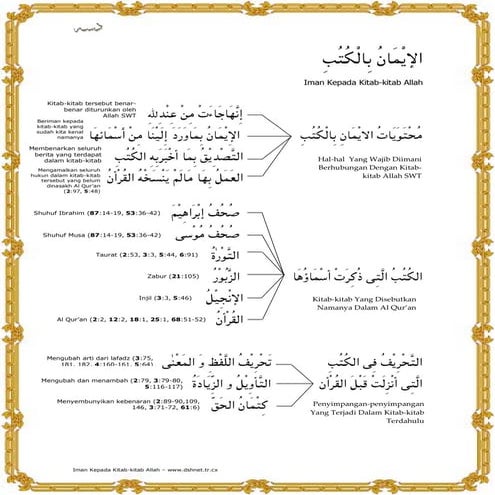 الإِيْمَانُ بِالْكُتُبِ
Iman Kepada Kitab-kitab Allah
مُحْتَوَيَاتُ الايْمَانِ بِالْكُتُبِ
Hal-hal Yang Wajib Diimani
Berhubungan Dengan Kitab-
kitab Allah SWT
إِنَّهَا جَاءَتْ مِنْ عِنْدِ لله
Kitab-kitab tersebut benar-
benar diturunkan oleh
Allah SWT
الإِيْمَانُ بِمَا وَرَدَ إِلَيْنَا مِنْ أَسْمَائِهَا
Beriman kepada
kitab-kitab yang
sudah kita kenal
namanya
التَّصْدِيْقُ بِمَا أَخْبَرَ بِهِ الْكُتُبُ
Membenarkan seluruh
berita yang terdapat
dalam kitab-kitab
العَمَلُ بِهَا مَالَمْ يَنْسَخْهُ القُرْآنُ
Mengamalkan seluruh
hukun dalam kitab-kitab
tersebut yang belum
dinasakh Al Qur'an
(2:97, 5:48)
الكُتُبُ الَّتِى ذُكِرَتْ أَسْمَاؤُهَا
Kitab-kitab Yang Disebutkan
Namanya Dalam Al Qur'an
صُحُفُ إِبْرَاهِيْمَ
Shuhuf Ibrahim (87:14-19, 53:36-42)
صُحُفُ مُوْسَى
Shuhuf Musa (87:14-19, 53:36-42)
التَّوْرَةُ
Taurat (2:53, 3:3, 5:44, 6:91)
الزَّبُوْرُ
Zabur (21:105)
الإِنْجِيْلُ
Injil (3:3, 5:46)
القُرْآنُ
Al Qur'an (2:2, 12:2, 18:1, 25:1, 68:51-52)
التَّحْرِيْفُ فِى الْكُتُبِ
الَّتِى أُنْزِلَتْ قَبْلَ القُرْآن
Penyimpangan-penyimpangan
Yang Terjadi Dalam Kitab-kitab
Terdahulu
تَحْرِيْفُ اللَّفْظِ وَ الْمَعْنَى
Mengubah arti dari lafadz (3:75,
181, 182, 4:160-161, 5:64)
التَّأْوِيْلُ و الزِّيَادَةُ
Mengubah dan menambah (2:79, 3:79-80,
5:116-117)
كِتْمَانُ الحَقِّ
Menyembunyikan kebenaran (2:89-90,109,
146, 3:71-72, 61:6)
Iman Kepada Kitab-kitab Allah – www.dshnet.tr.cx